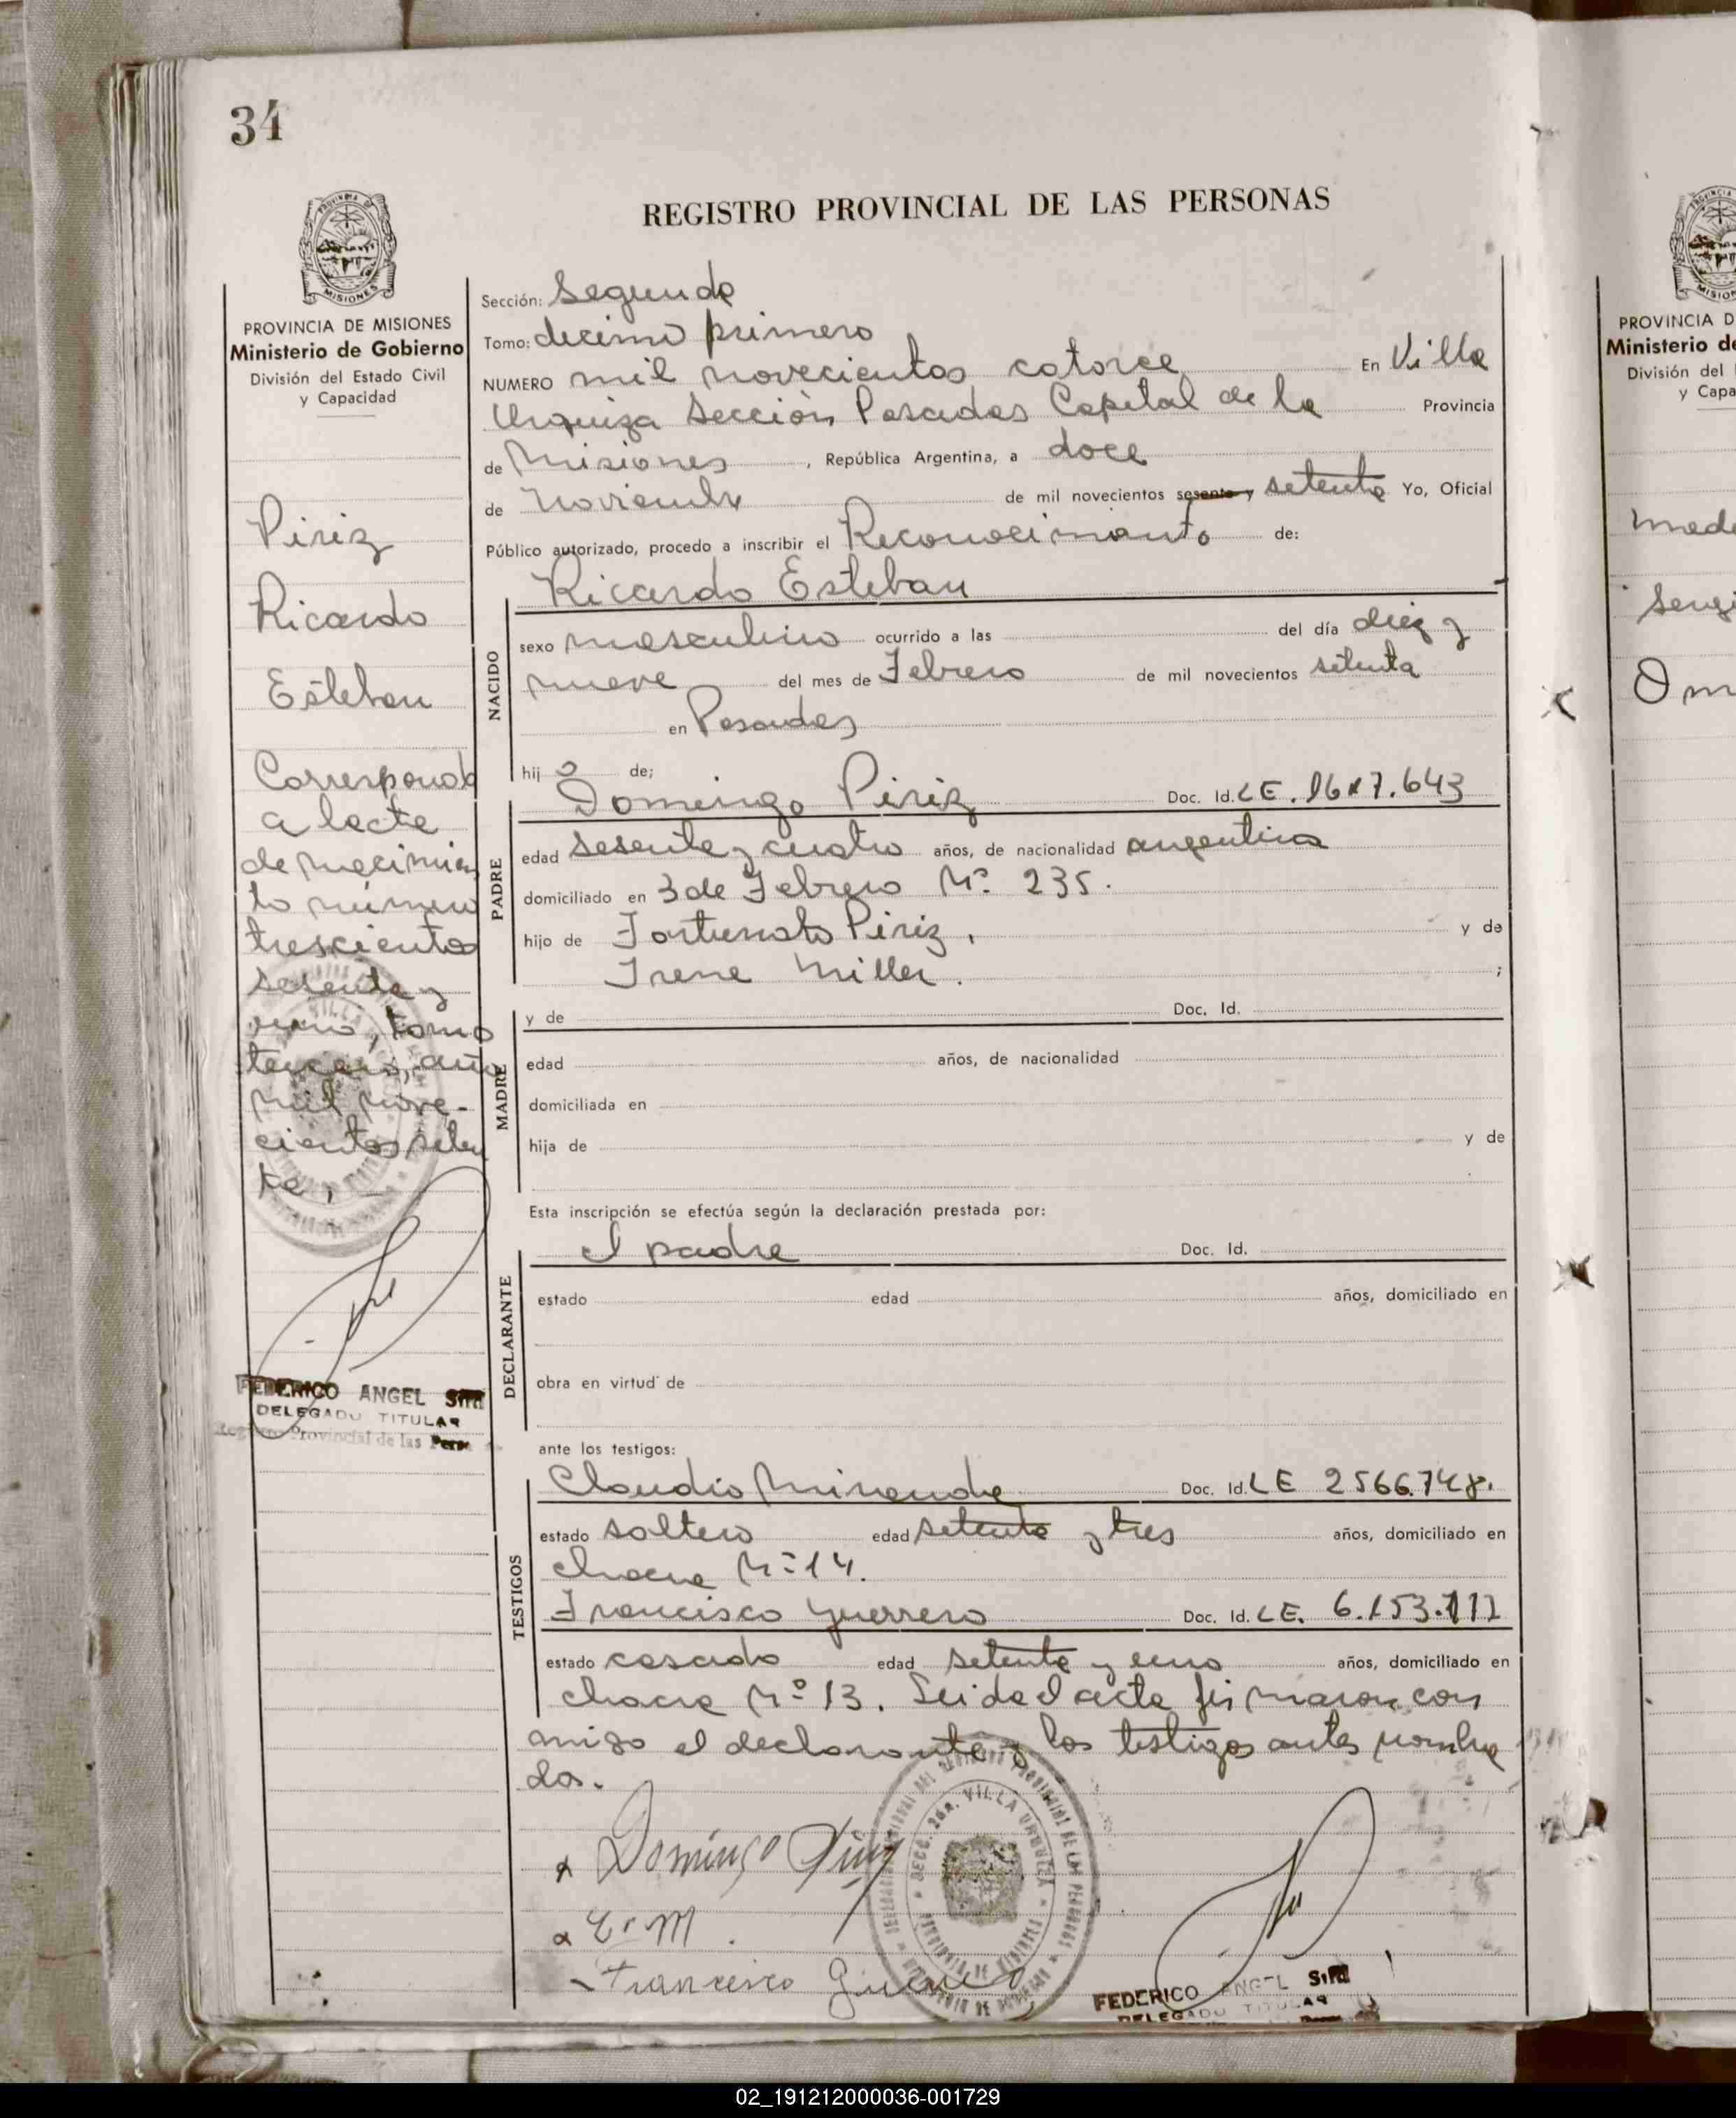 34
REGISTRO PROVINCIAL DE LAS PERSONAS
MISIONES
PROVINCIA DE MISIONES
Ministerio de Gobierno
División del Estado Civil
y Capacidad
Piriz
Ricardo
Esteban
Corresponde
a lacta
de nacimien
to número
trescientos
setenta y
uno, tomo
tercero, año
mil nove-
cientos seten
ta,
FEDERICO ANGEL
DELEGADO TITULAR
Registro Provincial de las Perso
Sección: Segunda
Tomo: decimo primero
NUMERO mil novecientos catorce En Villa
Urquiza Sección Posadas Capital de la Provincia
de Misiones , República Argentina, a doce
de Noviembre de mil novecientos sesenta y setenta Yo, Oficial
Público autorizado, procedo a inscribir el Reconocimiento de:
Ricardo Esteban
NACIDO
sexo masculino ocurrido a las del día diez y
nueve del mes de Febrero de mil novecientos setenta
en Posadas
hij o de;
PADRE
Domingo Piriz Doc. Id. LE.
edad sesenta y cuatro años, de nacionalidad argentina
domiciliado en 3 de Febrero Nº 235.
hijo de Fortunato Piriz, y de
Irene Miller. ;
MADRE
y de Doc. Id.
edad años, de nacionalidad
domiciliada en
hija de y de
Esta inscripción se efectúa según la declaración prestada por:
DECLARANTE
el padre Doc. Id.
estado edad años, domiciliado en
obra en virtud de
ante los testigos:
TESTIGOS
Claudio Miranda Doc. Id. LE 2566.748.
estado soltero edad setenta y tres años, domiciliado en
chacra Nº 14.
Francisco Guerrero Doc. Id. LE. 6.153.111
estado casado edad setenta y uno años, domiciliado en
chacra Nº 13. Leida el acta firmaron con
migo el declarante y los testigos antes nombra
dos.
Domingo Piriz
C. M.
Francisco Guerrero
SECC. 2da. VILLA URQUIZA
FEDERICO ANGEL
DELEGADO TITULAR
PROVINCIA D
Ministerio de
División del
y Capa
02_191212000036-001729